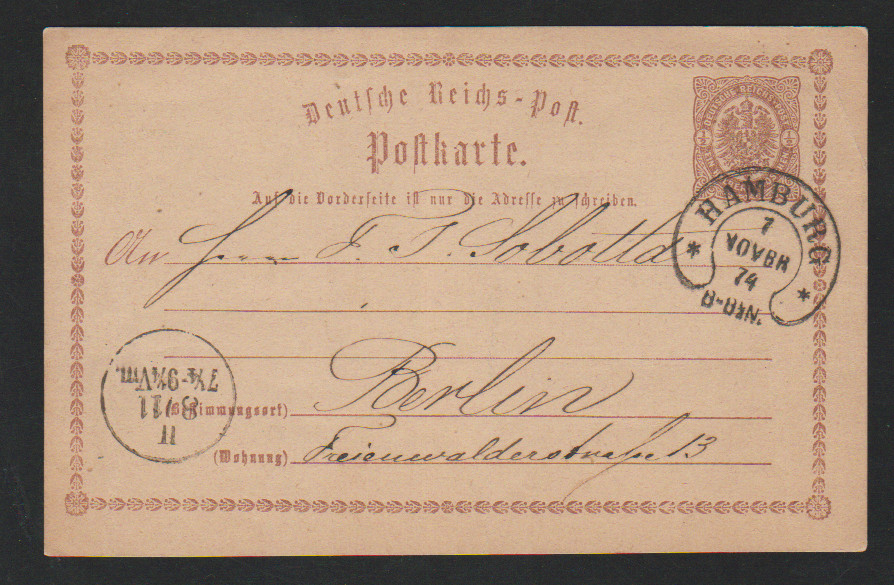 Deutsche Reichs-Post.
Postkarte.
Auf die Vorderseite ist nur die Adresse zu schreiben.
HAMBURG
7
74
An Herrn F. T. Sobotta
Berlin
(Bestimmungsort)
Freienwalderstraße 13
(Wohnung)
II
8/11
7¼-9¼Vm.